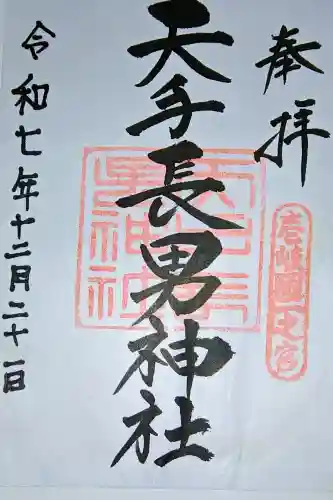 奉拝
壱岐國一之宮
天手長男神社
天手長男神社
令和七年十二月二十一日